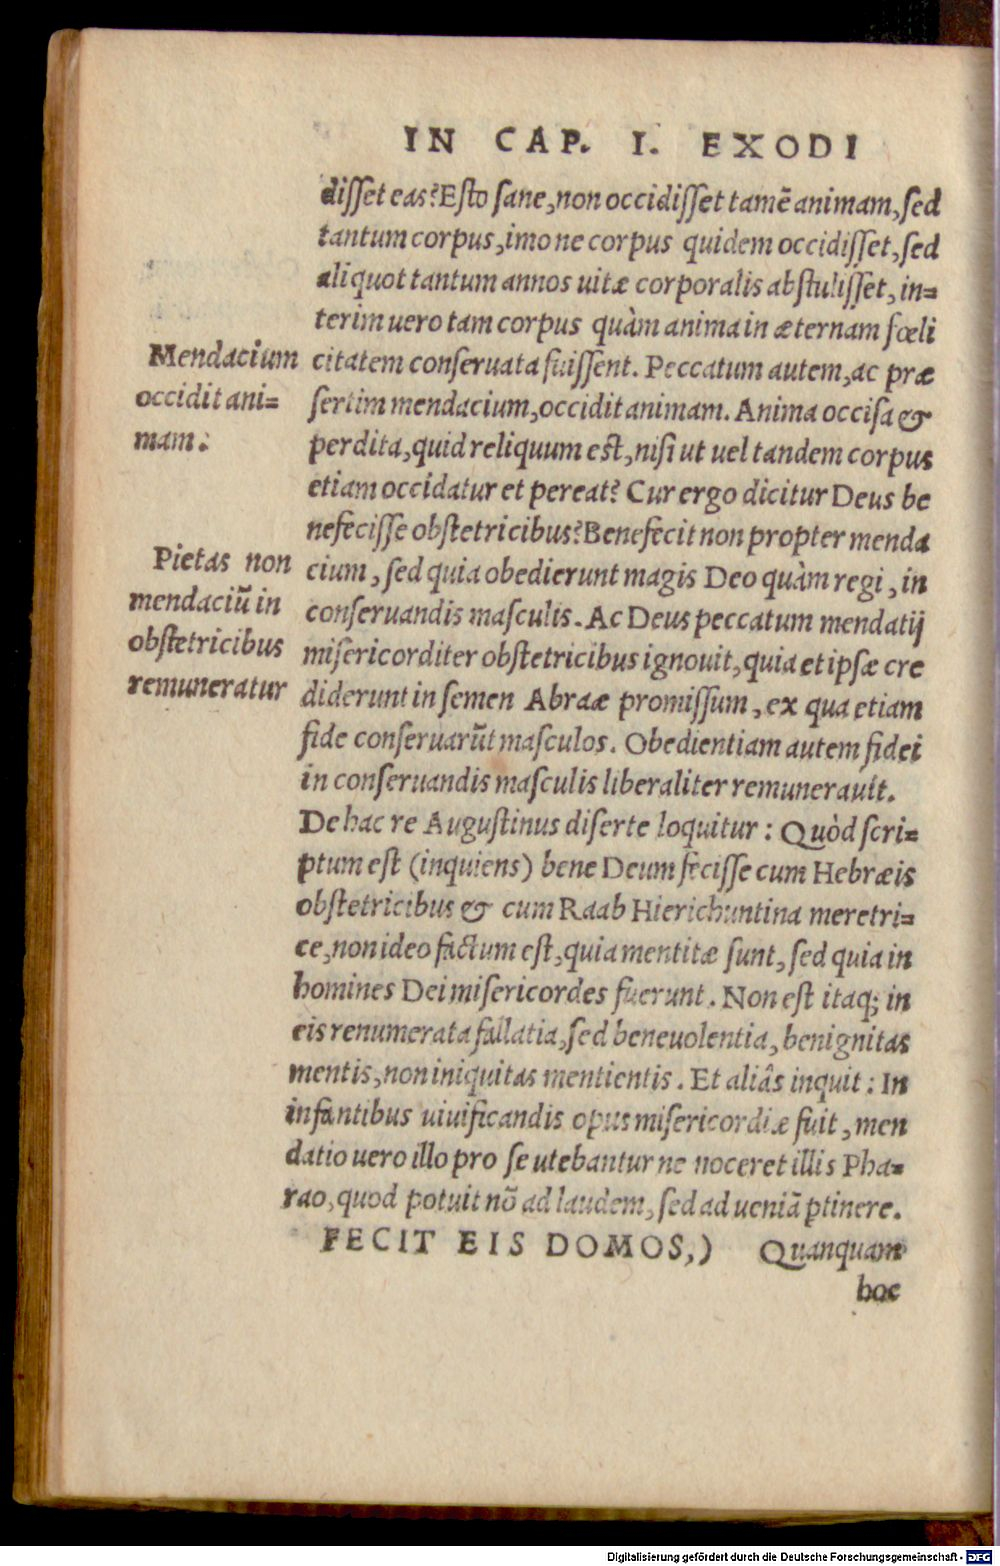 IN CAP. I. EXODI
disset eas? Esto sane, non occidisset tamē animam, sed
tantum corpus, imo ne corpus quidem occidisset, sed
aliquot tantum annos uitæ corporalis abstulisset, in=
terim uero tam corpus quàm anima in æternam fœli
citatem conseruata fuissent. Peccatum autem, ac præ
sertim mendacium, occidit animam. Anima occisa &
perdita, quid reliquum est, nisi ut uel tandem corpus
etiam occidatur et pereat? Cur ergo dicitur Deus be
nefecisse obstetricibus? Benefecit non propter menda
cium, sed quia obedierunt magis Deo quàm regi, in
conseruandis masculis. Ac Deus peccatum mendatij
misericorditer obstetricibus ignouit, quia et ipsæ cre
diderunt in semen Abraæ promissum, ex qua etiam
fide conseruarūt masculos. Obedientiam autem fidei
in conseruandis masculis liberaliter remunerauit.
De hac re Augustinus diserte loquitur: Quòd scri=
ptum est (inquiens) bene Deum fecisse cum Hebræis
obstetricibus & cum Raab Hierichuntina meretri=
ce, non ideo factum est, quia mentitæ sunt, sed quia in
homines Dei misericordes fuerunt. Non est itaq; in
eis renumerata fallatia, sed beneuolentia, benignitas
mentis, non iniquitas mentientis. Et aliâs inquit: In
infantibus uiuificandis opus misericordiæ fuit, men
datio uero illo pro se utebantur ne noceret illis Pha=
rao, quod potuit nō ad laudem, sed ad ueniā ptinere.
FECIT EIS DOMOS,) Quanquam
hoc
Mendacium
occidit ani=
mam.
Pietas non
mendaciū in
obstetricibus
remuneratur
Digitalisierung gefördert durch die Deutsche Forschungsgemeinschaft - DFG